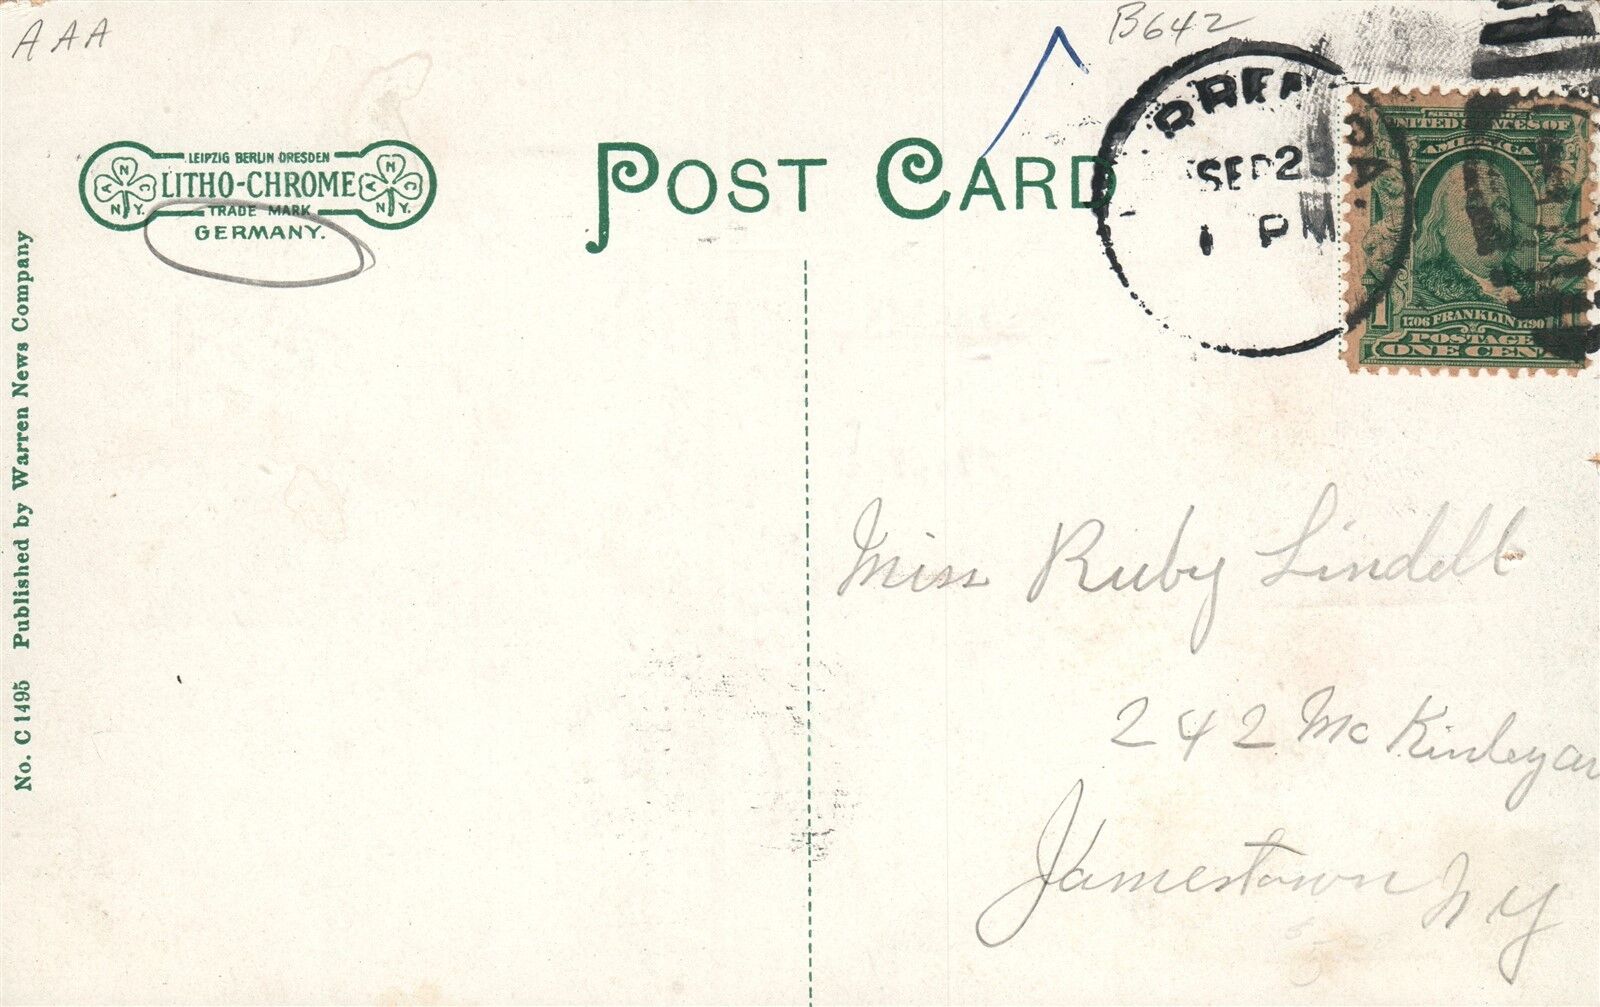 AAA
B642
LEIPZIG BERLIN DRESDEN
LITHO-CHROME
TRADE MARK
GERMANY.
A N C
N.Y.
A N C
N.Y.
POST CARD
SEP 2
1 PM
PA.
SERIES 1902
UNITED STATES OF
AMERICA
1706 FRANKLIN 1790
POSTAGE
1
ONE CENT
No. C 1495 Published by Warren News Company
Miss Ruby Lindell
242 McKinley av
Jamestown NY